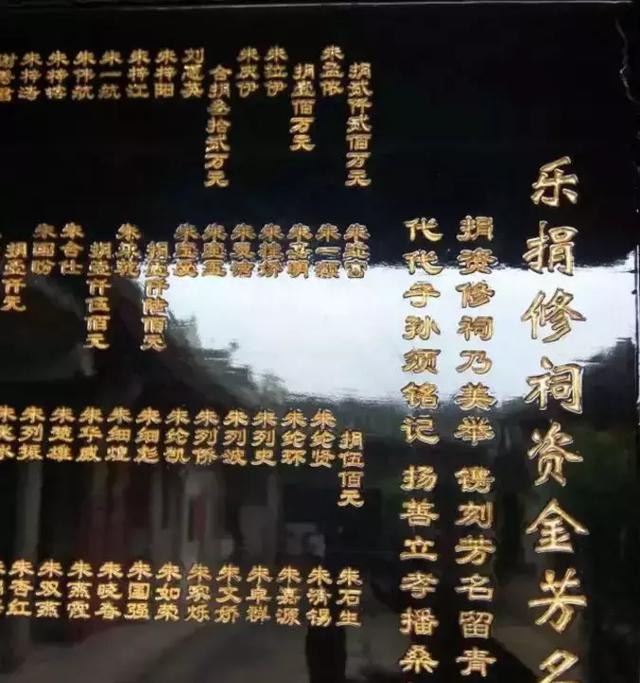 乐捐修祠资金芳名
捐资修祠乃美举 镌刻芳名留青
代代子孙须铭记 扬善立孝播桑
捐贰仟贰佰万元
朱孟依
捐壹佰万元
朱拉伊
朱庆伊
合捐叁拾贰万元
刘慧英
朱持阳
朱持江
朱一航
朱伟航
朱持
朱持
朱
朱一颖
朱明
朱桂娇
朱
朱
朱
捐壹仟陆佰元
朱乾
捐壹仟伍佰元
朱合仕
朱国昉
捐壹仟元
捐伍佰元
朱纶贤
朱纶环
朱列史
朱列波
朱列侨
朱纶凯
朱细彪
朱细煌
朱华威
朱楚雄
朱列振
朱石生
朱清锡
朱嘉源
朱卓群
朱文娇
朱家烁
朱如荣
朱国强
朱晓春
朱燕霞
朱双燕
朱杏红